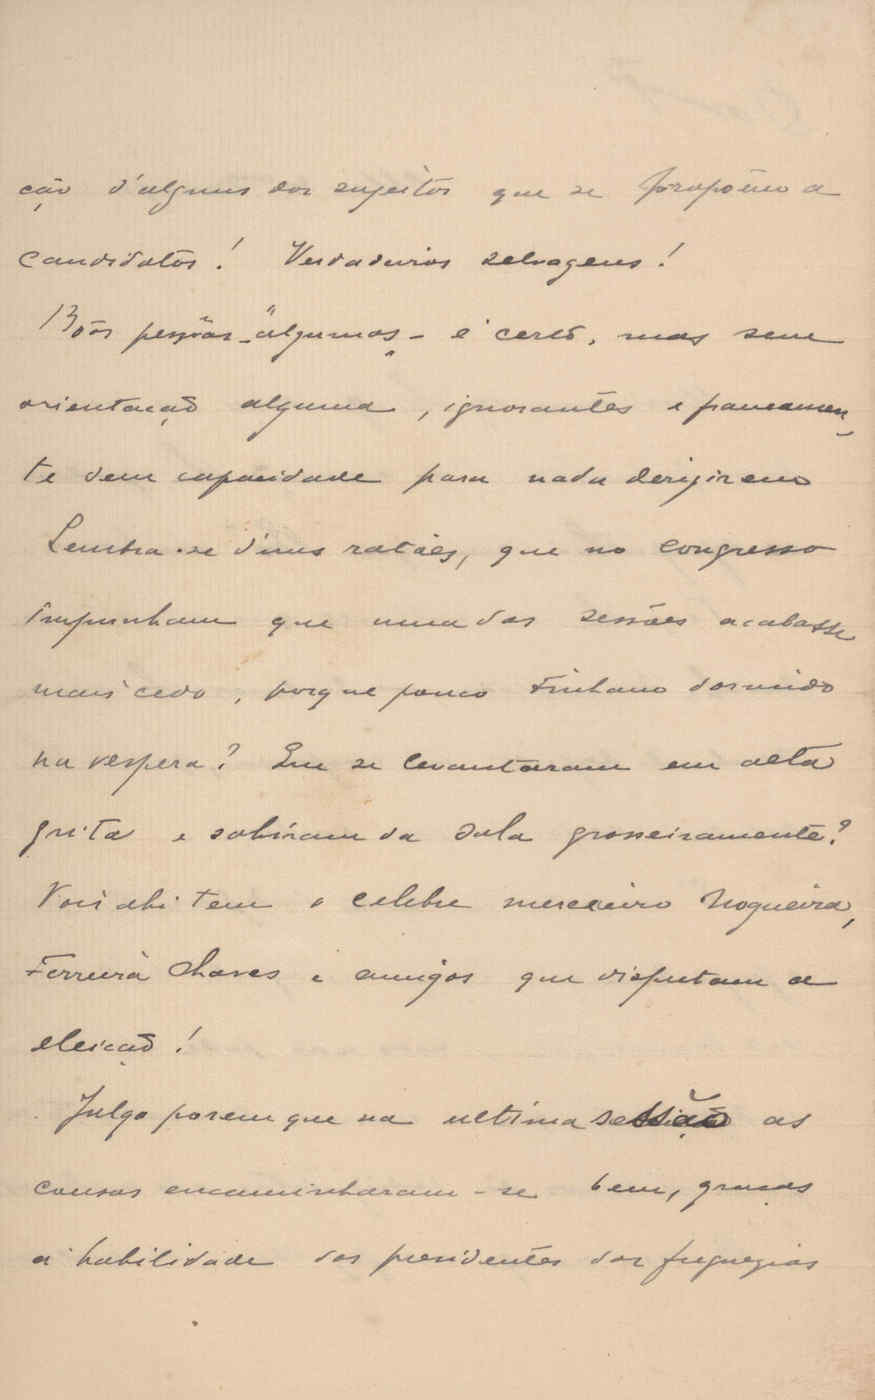 ção d'alguns dos sujeitos que se propõem a
candidatos! Verdadeiros selvagens!
Bôas pessôas - "algumas" - é certo, mas sem
orientação alguma, ignorantes e francamen-
te sem capacidade para nada derigirem
Lembra-se d'uns ratões, que no congresso
impunham que uma das sessões acabasse
mais cedo, porque pouco tinham dormido
na vespera? Que se levantaram em alta
grita e sahiram da sala grosseiramente?
Pois ahi tem o celebre merceeiro Nogueira,
Ferreira Chaves e amigos que disputam a
eleição!
Julgo porem que na ultima sessão as
cousas encaminharam-se bem, graças
a habilidade dos presidentes das freguezias